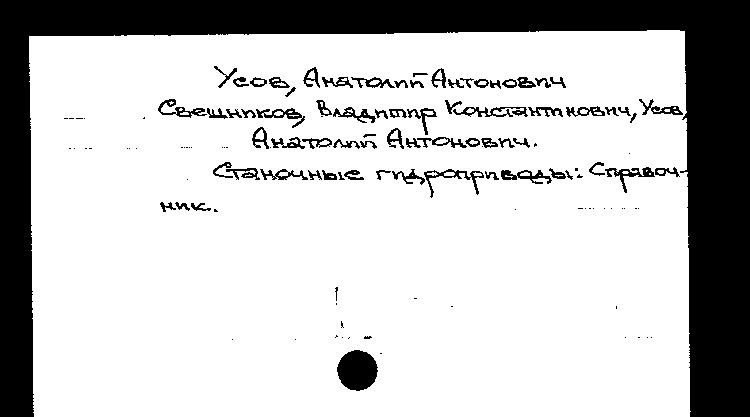 Усов, Анатолий Антонович
Свешников, Владимир Константинович, Усов,
Анатолий Антонович.
Станочные гидроприводы: Справоч-
ник.